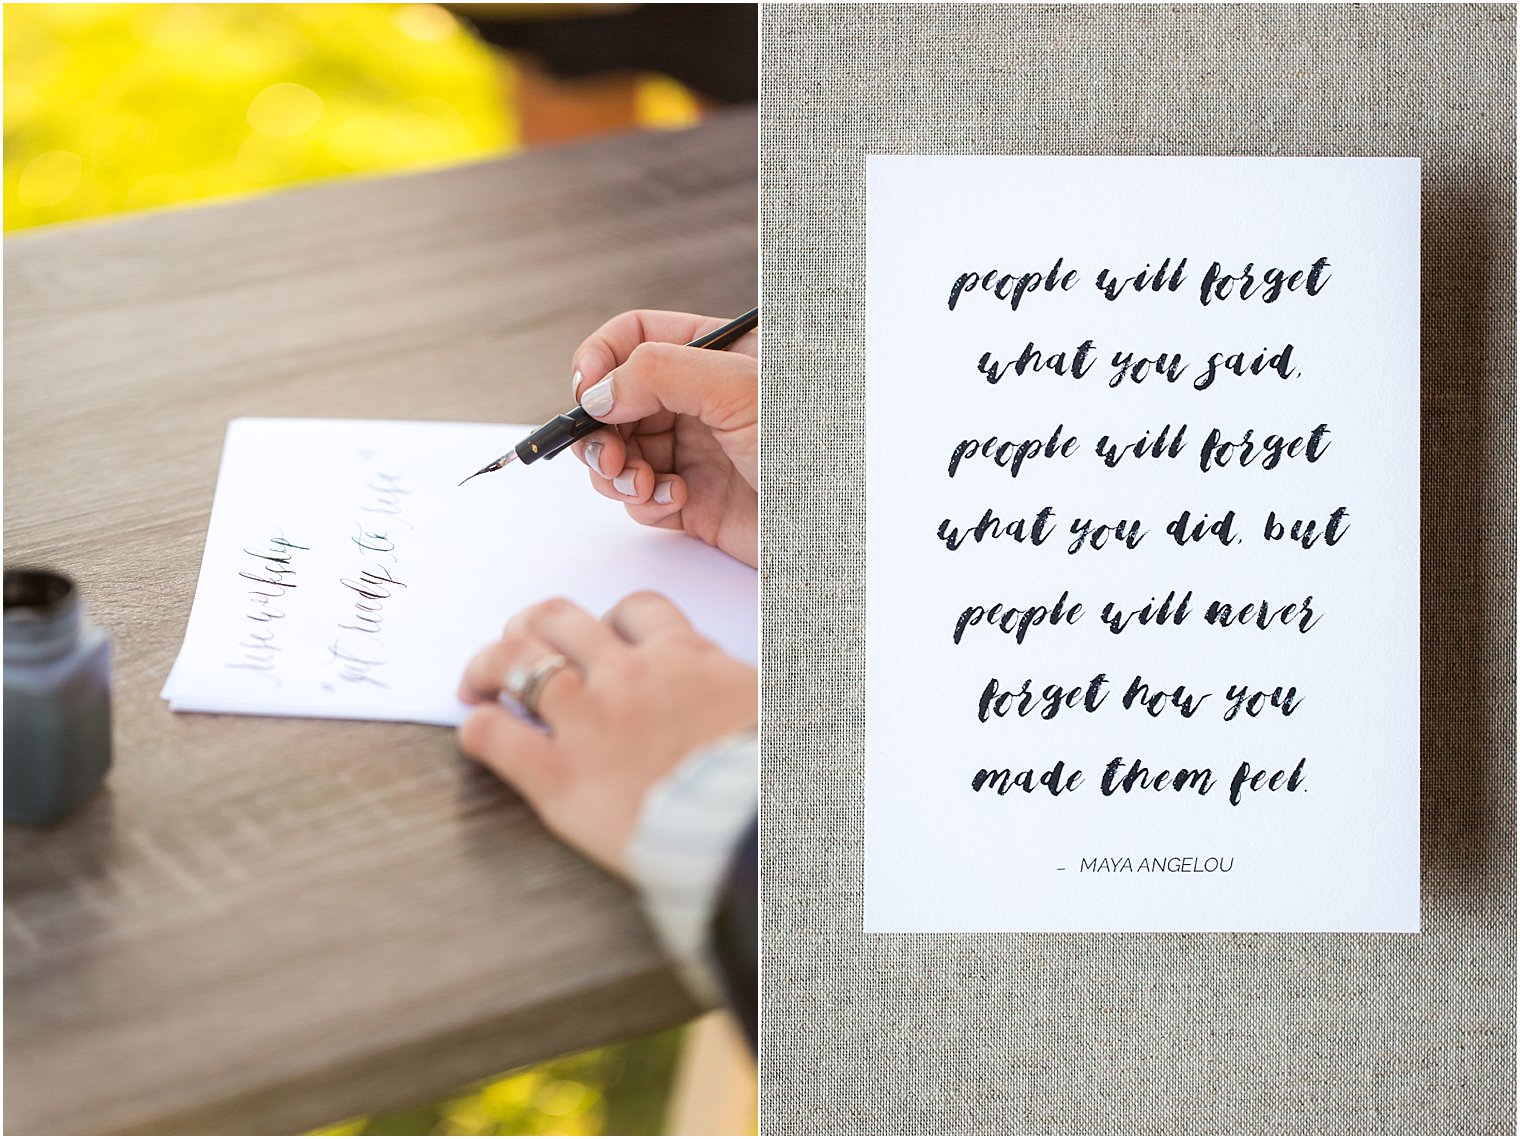 rise workshop
"get ready to rise"
people will forget
what you said,
people will forget
what you did, but
people will never
forget how you
made them feel.
– MAYA ANGELOU